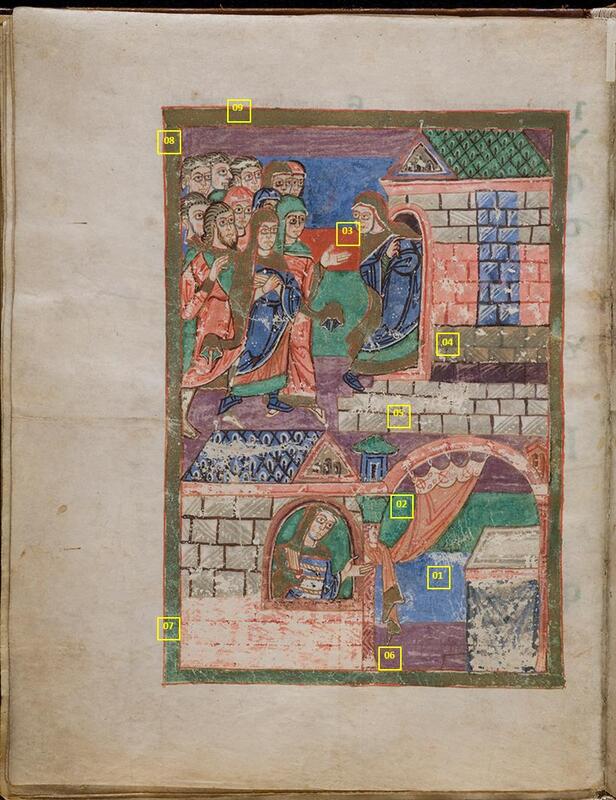 09
08
03
04
05
02
01
07
06